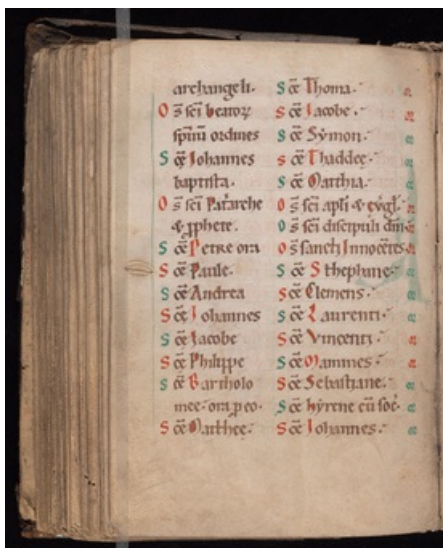 archangeli.
O s̄ sc̄i beatoꝝ
spirituū ordines
S c̄e Iohannes
baptista.
O s̄ sc̄i Patriarche
& ꝓphete.
S c̄e Petre ora
S c̄e Paule.
S c̄e Andrea
S c̄e Iohannes
S c̄e Iacobe.
S c̄e Philippe
S c̄e Bartholo
mee. ora p eo.
S c̄e Mathee.
S c̄e Thoma.
S c̄e Iacobe.
S c̄e Symon.
S c̄e Thaddee.
S c̄e Mathia.
O s̄ sc̄i apl̄i & evḡl.
O s̄ sc̄i discipuli dn̄i
O s̄ sancti Innocētes
S c̄e Stephane.
S c̄e Clemens.
S c̄e Laurenti.
S c̄e Vincenti.
S c̄e Mammes.
S c̄e Sebastiane.
S c̄e hyrene cū soc̄.
S c̄e Iohannes.